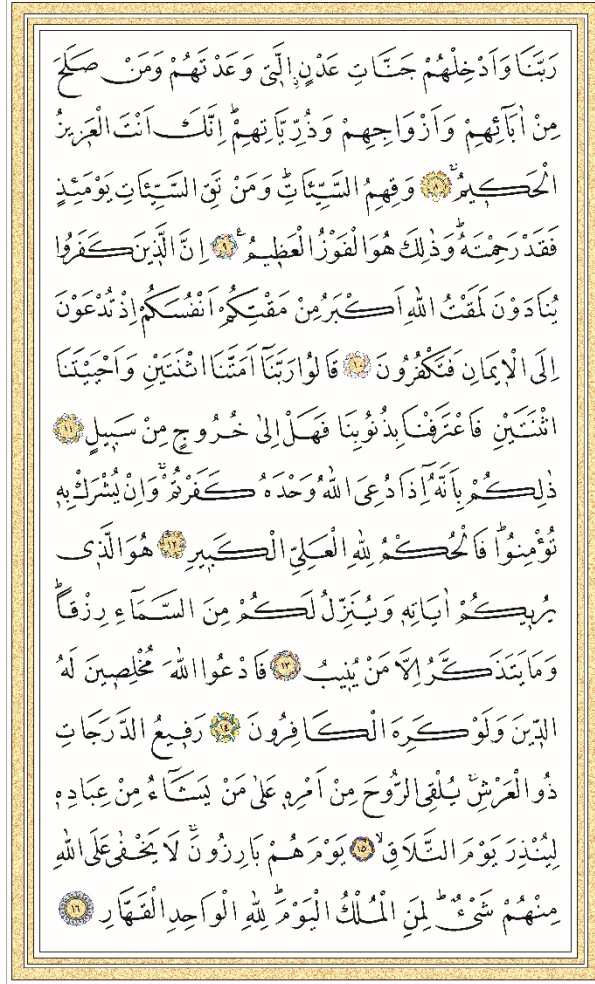 رَبَّنَا وَاَدْخِلْهُمْ جَنَّاتِ عَدْنٍۨ الَّتٖى وَعَدْتَهُمْ وَمَنْ صَلَحَ
مِنْ اٰبَٓائِهِمْ وَاَزْوَاجِهِمْ وَذُرِّيَّاتِهِمْۜ اِنَّكَ اَنْتَ الْعَزٖيزُ
الْحَكٖيمُۙ ٨ وَقِهِمُ السَّيِّـَٔاتِۜ وَمَنْ تَقِ السَّيِّـَٔاتِ يَوْمَئِذٍ
فَقَدْ رَحِمْتَهُۜ وَذٰلِكَ هُوَ الْفَوْزُ الْعَظٖيمُࣖ ٩ اِنَّ الَّذٖينَ كَفَرُوا
يُنَادَوْنَ لَمَقْتُ اللّٰهِ اَكْبَرُ مِنْ مَقْتِكُمْ اَنْفُسَكُمْ اِذْ تُدْعَوْنَ
اِلَى الْاٖيمَانِ فَتَكْفُرُونَ ١٠ قَالُوا رَبَّنَٓا اَمَتَّنَا اثْنَتَيْنِ وَاَحْيَيْتَنَا
اثْنَتَيْنِ فَاعْتَرَفْنَا بِذُنُوبِنَا فَهَلْ اِلٰى خُرُوجٍ مِنْ سَبٖيلٍ ١١
ذٰلِكُمْ بِاَنَّهُٓ اِذَا دُعِىَ اللّٰهُ وَحْدَهُ كَفَرْتُمْۚ وَاِنْ يُشْرَكْ بِهٖ
تُؤْمِنُواۜ فَالْحُكْمُ لِلّٰهِ الْعَلِىِّ الْكَبٖيرِ ١٢ هُوَ الَّذٖى
يُرٖيكُمْ اٰيَاتِهٖ وَيُنَزِّلُ لَكُمْ مِنَ السَّمَٓاءِ رِزْقاًۜ
وَمَا يَتَذَكَّرُ اِلَّا مَنْ يُنٖيبُ ١٣ فَادْعُوا اللّٰهَ مُخْلِصٖينَ لَهُ
الدّٖينَ وَلَوْ كَرِهَ الْكَافِرُونَ ١٤ رَفٖيعُ الدَّرَجَاتِ
ذُو الْعَرْشِۚ يُلْقِى الرُّوحَ مِنْ اَمْرِهٖ عَلٰى مَنْ يَشَٓاءُ مِنْ عِبَادِهٖ
لِيُنْذِرَ يَوْمَ التَّلَاقِۙ ١٥ يَوْمَ هُمْ بَارِزُونَۚ لَا يَخْفٰى عَلَى اللّٰهِ
مِنْهُمْ شَىْءٌۜ لِمَنِ الْمُلْكُ الْيَوْمَۜ لِلّٰهِ الْوَاحِدِ الْقَهَّارِ ١٦